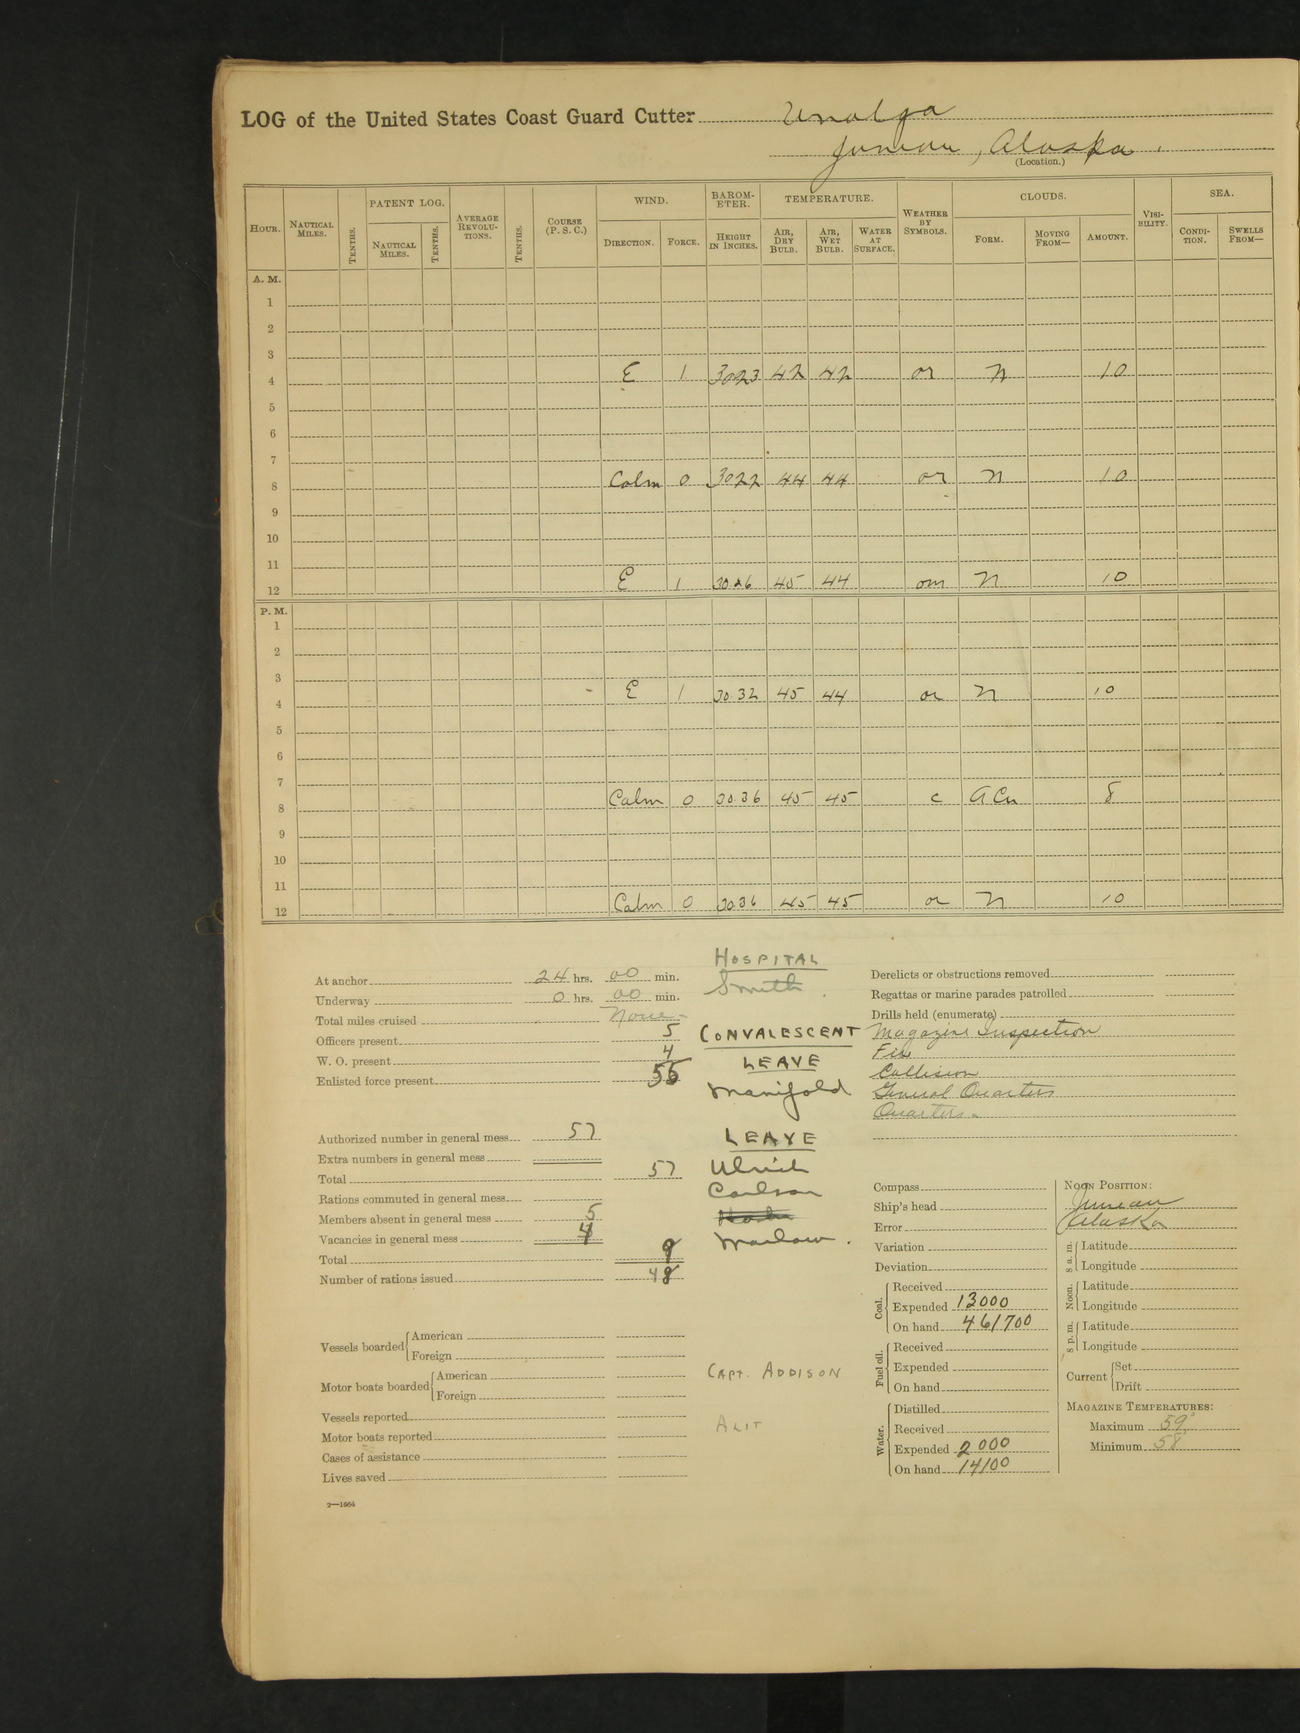 LOG of the United States Coast Guard Cutter Unalga
Juneau, Alaska.
(Location.)
HOUR. NAUTICAL MILES. TENTHS. PATENT LOG. NAUTICAL MILES. TENTHS. AVERAGE REVOLUTIONS. TENTHS. COURSE (P. S. C.) WIND. DIRECTION. FORCE. BAROMETER. HEIGHT IN INCHES. TEMPERATURE. AIR, DRY BULB. AIR, WET BULB. WATER AT SURFACE. WEATHER BY SYMBOLS. CLOUDS. FORM. MOVING FROM— AMOUNT. VISIBILITY. SEA. CONDITION. SWELLS FROM—
A. M.
1
2
3
4 E 1 3023 42 42 or N 10
5
6
7
8 Calm 0 3022 44 44 or N 10
9
10
11
12 E 1 30.26 45 44 om N 10
P. M.
1
2
3
4 E 1 30.32 45 44 or N 10
5
6
7
8 Calm 0 30.36 45 45 c A Cu 8
9
10
11
12 Calm 0 30.36 45 45 or N 10
At anchor 24 hrs. 00 min.
Underway 0 hrs. 00 min.
Total miles cruised None
Officers present 5
W. O. present 4
Enlisted force present 55
Authorized number in general mess 57
Extra numbers in general mess
Total 57
Rations commuted in general mess
Members absent in general mess 5
Vacancies in general mess 4
Total 9
Number of rations issued 48
Vessels boarded American
Foreign
Motor boats boarded American
Foreign
Vessels reported
Motor boats reported
Cases of assistance
Lives saved
2—1664
HOSPITAL
Smith.
CONVALESCENT
LEAVE
Manifold
LEAVE
Ulrich
Carlson
Marlow.
CAPT. ADDISON
ALIT
Derelicts or obstructions removed
Regattas or marine parades patrolled
Drills held (enumerate)
Magazine Inspection
Fire
Collision
General Quarters
Quarters.
Compass
Ship's head
Error
Variation
Deviation
Coal. Received
Expended 13000
On hand 461700
Fuel oil. Received
Expended
On hand
Water. Distilled
Received
Expended 2000
On hand 14100
NOON POSITION:
Juneau
Alaska
8 a. m. Latitude
Longitude
Noon. Latitude
Longitude
8 p. m. Latitude
Longitude
Current Set
Drift
MAGAZINE TEMPERATURES:
Maximum 59°
Minimum 58